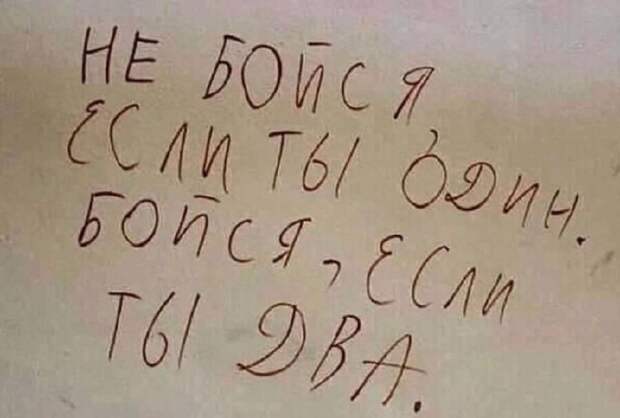 НЕ БОЙСЯ,
ЕСЛИ ТЫ ОДИН.
БОЙСЯ, ЕСЛИ
ТЫ ДВА.